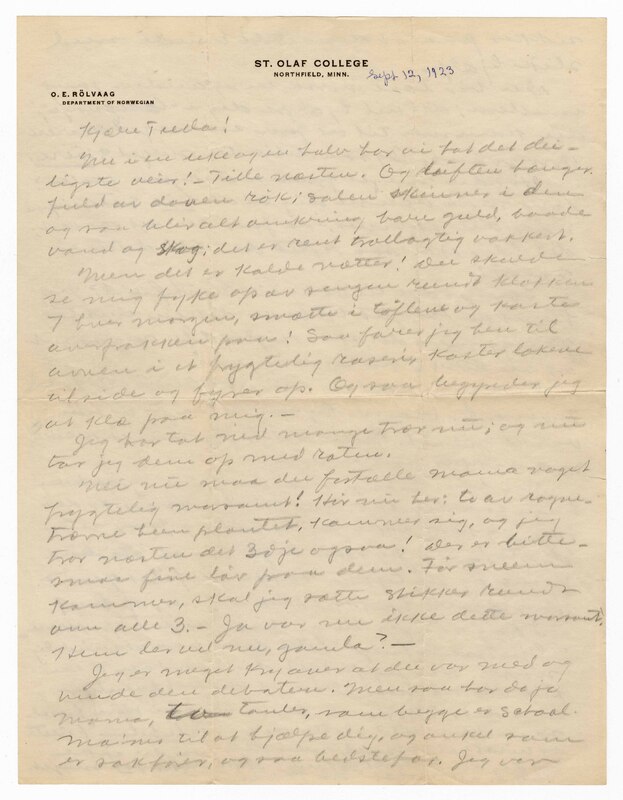 ST. OLAF COLLEGE
NORTHFIELD, MINN.
Sept 12, 1923
O. E. RÖLVAAG
DEPARTMENT OF NORWEGIAN
Kjære Tulla!
Nu i en uke og en halv har vi hat det dei-
ligste veir! – Stille næsten. Og luften hænger
fuld av doven røk; solen skinner i den
og saa blir alt omkring bare guld, baade
vand og skog; det er rent troldagtig vakkert.
Men det er kalde nætter! Du skulde
se mig fyke op av sengen rundt klokken
7 hver morgen, smætte i tøflene og kaste
overfrakken paa! Saa farer jeg hen til
ovnen i et frygtelig raseri, kaster lokene
tilside og fyrer op. Og saa begynder jeg
at klæ paa mig. –
Jeg har tat ned mange trær nu; og nu
tar jeg dem op med roten.
Nei nu maa du fortælle mama noget
frygtelig morsomt! Hør nu her: to av rogne-
trærne hun plantet, kommer sig, og jeg
tror næsten det 3dje ogsaa! Der er bitte-
smaa fine løv paa dem. Før sneen
kommer, skal jeg sætte stikker rundt
om alle 3. – Ja var nu ikke dette morsomt,
du nu, gamla? –
Jeg er meget kry over at du var med og
vinde den debaten. Men saa har du jo
mama, tanter, som begge er School-
Maims til at hjælpe dig, og onkel som
er sakfører, og saa bedstefar. Jeg var